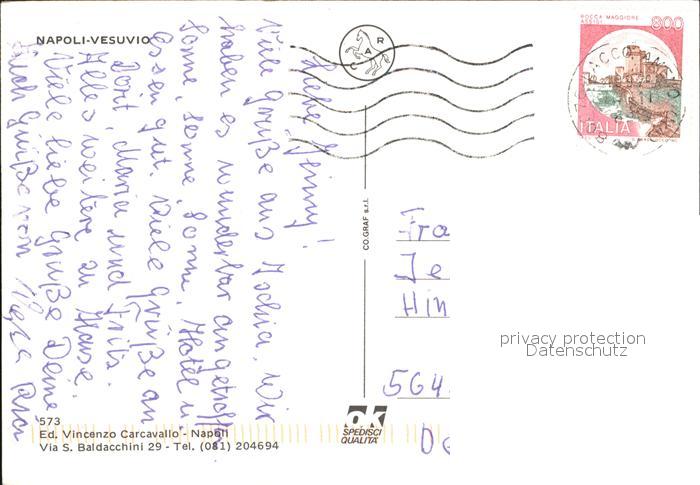 NAPOLI-VESUVIO
Liebe Jenny!
Viele Grüße aus Ischia. Wir
haben es wunderbar angetroffen
Sonne, Sonne, Sonne. Hotel u.
Essen gut. Viele Grüße an
Dont, Maria und Fritz.
Alles weitere zu Hause.
Viele liebe Grüße Deine
Auch Grüße von
573
Ed. Vincenzo Carcavallo - Napoli
Via S. Baldacchini 29 - Tel. (081) 204694
C A R
CO.GRAF s.r.l.
OK
SPEDISCI
QUALITÀ
ROCCA MAGGIORE
ASSISI
800
ITALIA
Fra
Je
Hin
564
privacy protection
Datenschutz